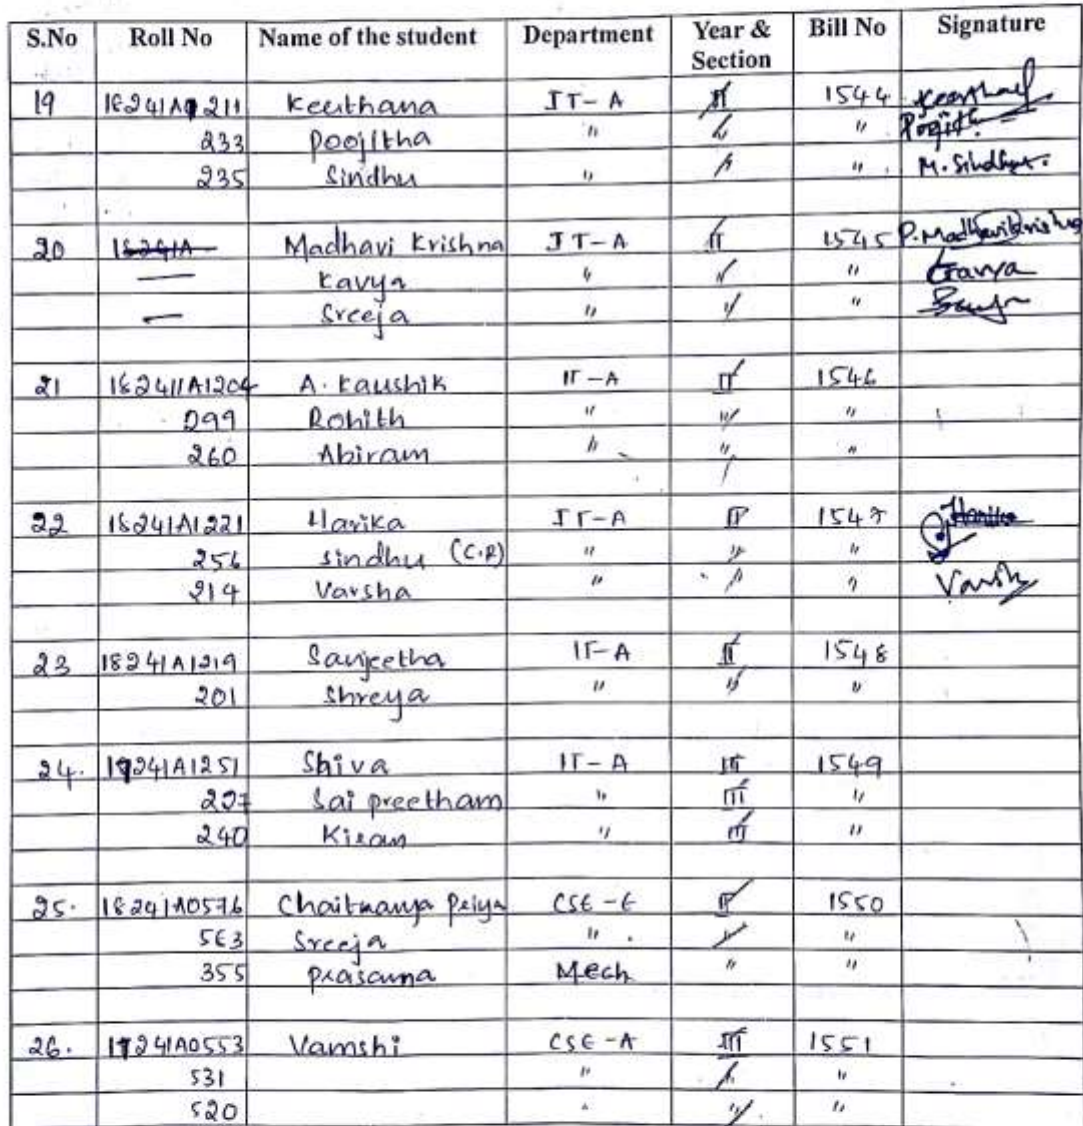 S.No Roll No Name of the student Department Year & Section Bill No Signature
19 18241A1211 Keerthana IT-A II 1544 Keerthana
233 Poojitha " " " Poojitha
235 Sindhu " " " M. Sindhu
20 18241A Madhavi Krishna IT-A II 1545 P. Madhavi Krishna
— Kavya " " " Kavya
— Sreeja " " "
21 18241A1204 A. Kaushik IT-A II 1546
299 Rohith " " "
260 Abiram " " "
22 18241A1221 Harika IT-A II 1547 Harika
256 Sindhu (C.R) " " "
214 Varsha " " " Varsh
23 18241A1219 Sanjeetha IT-A II 1548
201 Shreya " " "
24. 1241A1251 Shiva IT-A III 1549
207 Sai preetham " III "
240 Kiran " III "
25. 18241A0576 Chaitnanya Priya CSE-E II 1550
563 Sreeja " " "
355 Prasanna Mech " "
26. 17241A0553 Vamshi CSE-A III 1551
531 " " "
520 " " "